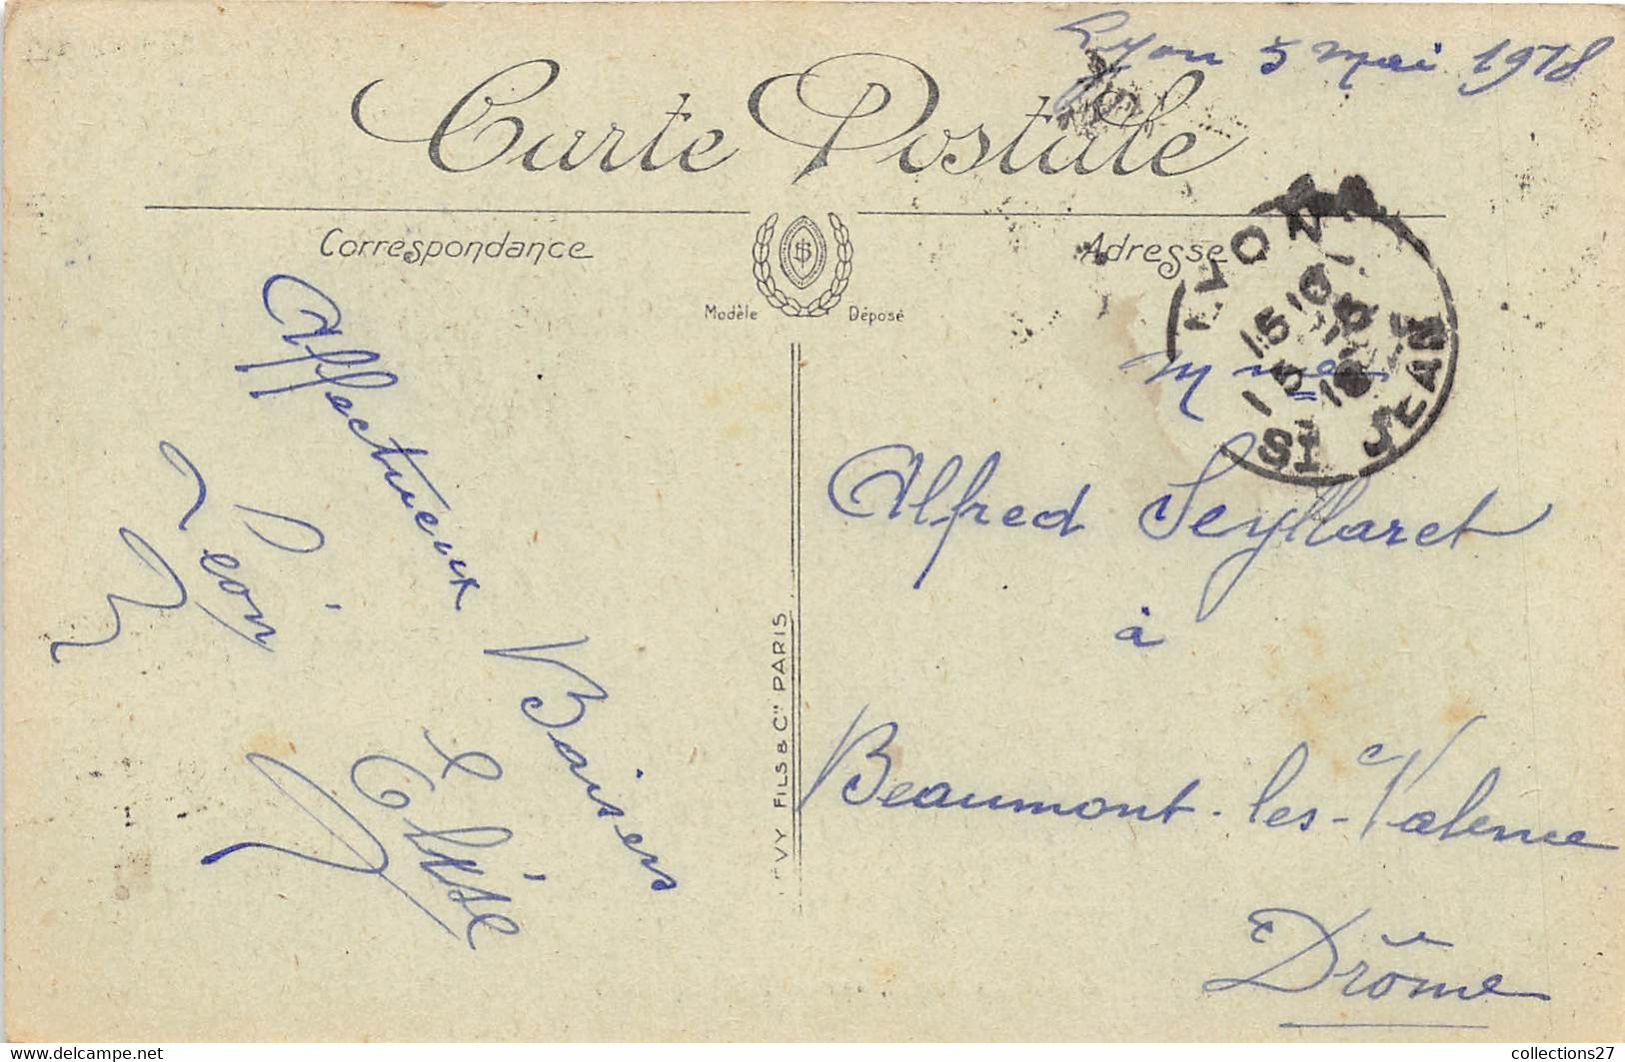 Lyon 5 mai 1918
Carte Postale
Correspondance
Adresse
Modèle Déposé
LYON
15 10
5 -5
18
ST JEAN
Alfred Seyllaret
à
Beaumont-les-Valence
Drôme
Affectueux Baisers
Léon
Elise
LEVY FILS & Cie PARIS
www.delcampe.net
collections27